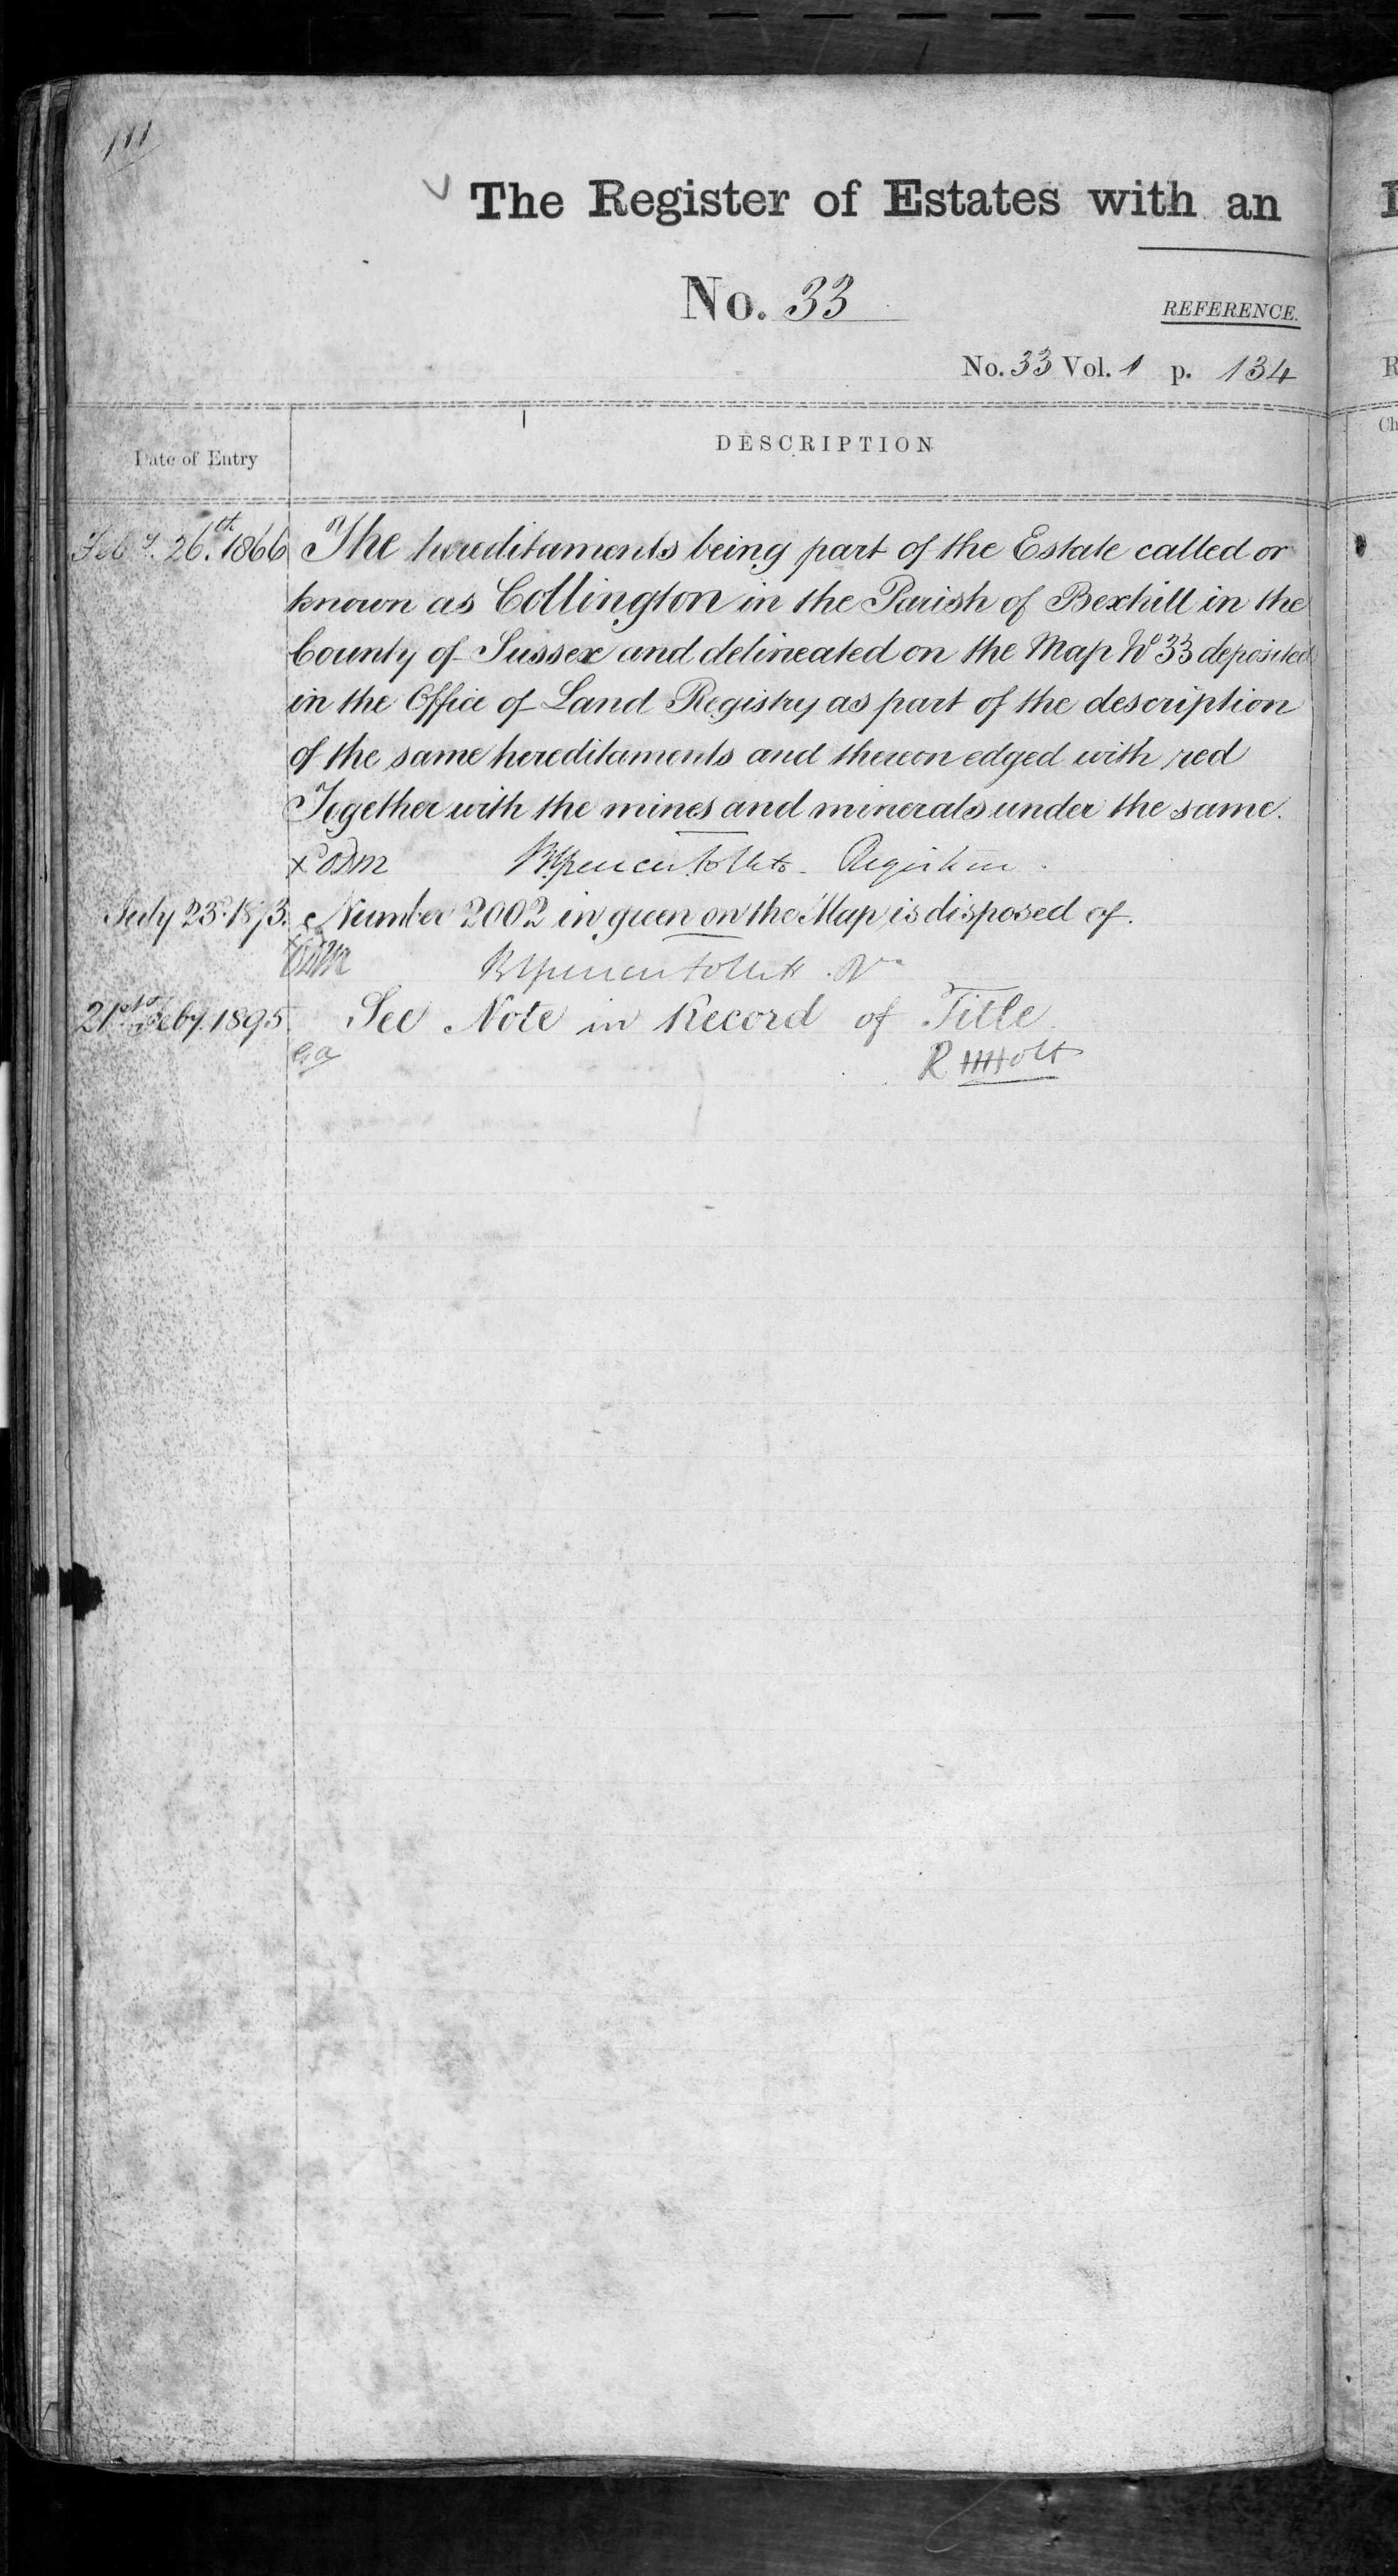 111
The Register of Estates with an
No. 33
REFERENCE.
No. 33 Vol. 1 p. 134
Date of Entry
DESCRIPTION
Feby. 26th. 1866 The hereditaments being part of the Estate called or
known as Collington in the Parish of Bexhill in the
County of Sussex and delineated on the Map No 33 deposited
in the Office of Land Registry as part of the description
of the same hereditaments and thereon edged with red
Together with the mines and minerals under the same.
Brent Spencer Follett Registrar
July 23rd. 1873. Number 2002 in green on the Map is disposed of.
Brent Spencer Follett Rr
21st Feby. 1895. See Note in Record of Title
R. H. Holt